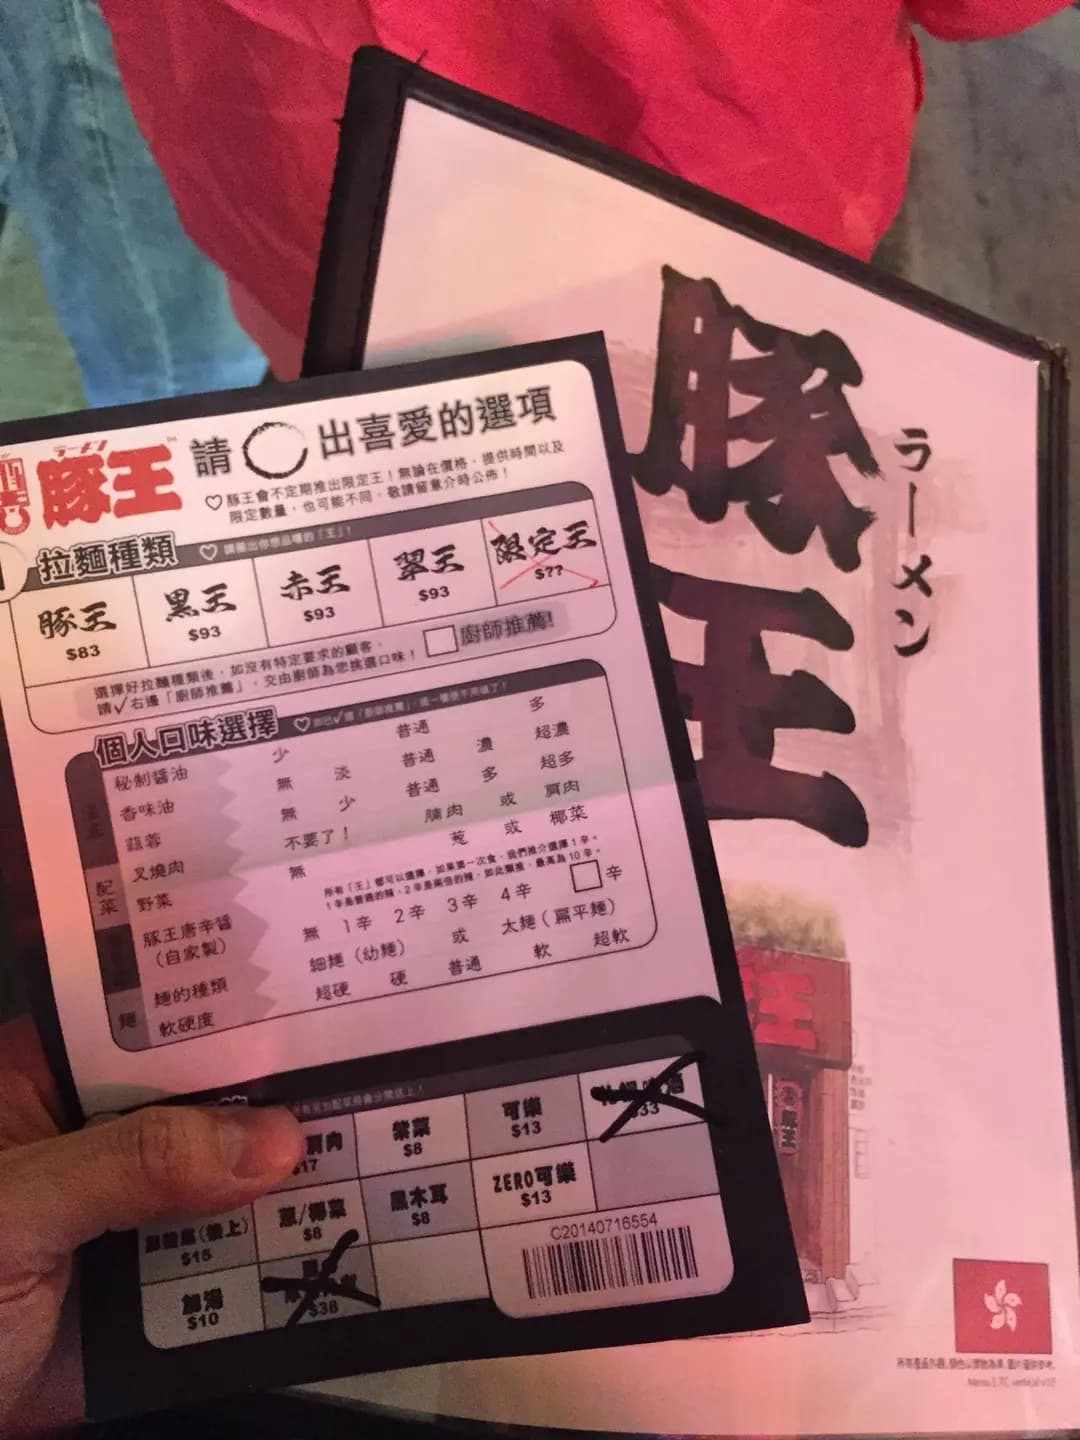 ラーメン
豚王
請 ○ 出喜愛的選項
♡豚王會不定期推出限定王！無論在價格、提供時間以及
限定數量，也可能不同，敬請留意介時公佈！
拉麵種類
♡請圈出你想品嚐的「王」？
豚王 黑王 赤王 翠王 限定王
$83 $93 $93 $93 $??
選擇好拉麵種類後，如沒有特定要求的顧客，
請✓右邊「廚師推薦」，交由廚師為您挑選口味！
廚師推薦!
個人口味選擇
秘制醬油 少 普通 多
香味油 無 淡 普通 濃 超濃
蒜蓉 無 少 普通 多 超多
叉燒肉 不要了！ 腩肉 或 肩肉
配菜
野菜 無 葱 或 椰菜
所有「王」都可以選擇，如果第一次食，我們推介選擇1辛。
1辛是普通的辣，2辛是兩倍的辣，如此類推，最高為10辛。
豚王唐辛醬
(自家製)
無 1辛 2辛 3辛 4辛 辛
麵
麵的種類 細麵（幼麵） 或 太麵（扁平麵）
軟硬度 超硬 硬 普通 軟 超軟
肩肉 紫菜 可樂
$8 $13 $33
葱/椰菜 黑木耳 ZERO可樂
$15 $8 $8 $13
加湯
$10 $38
C20140716554
豚王
ラーメン
王
豚王